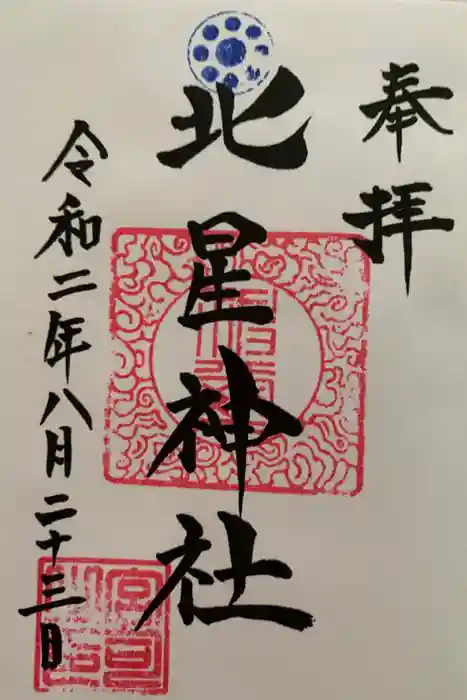 奉拝
北星神社
令和二年八月二十三日